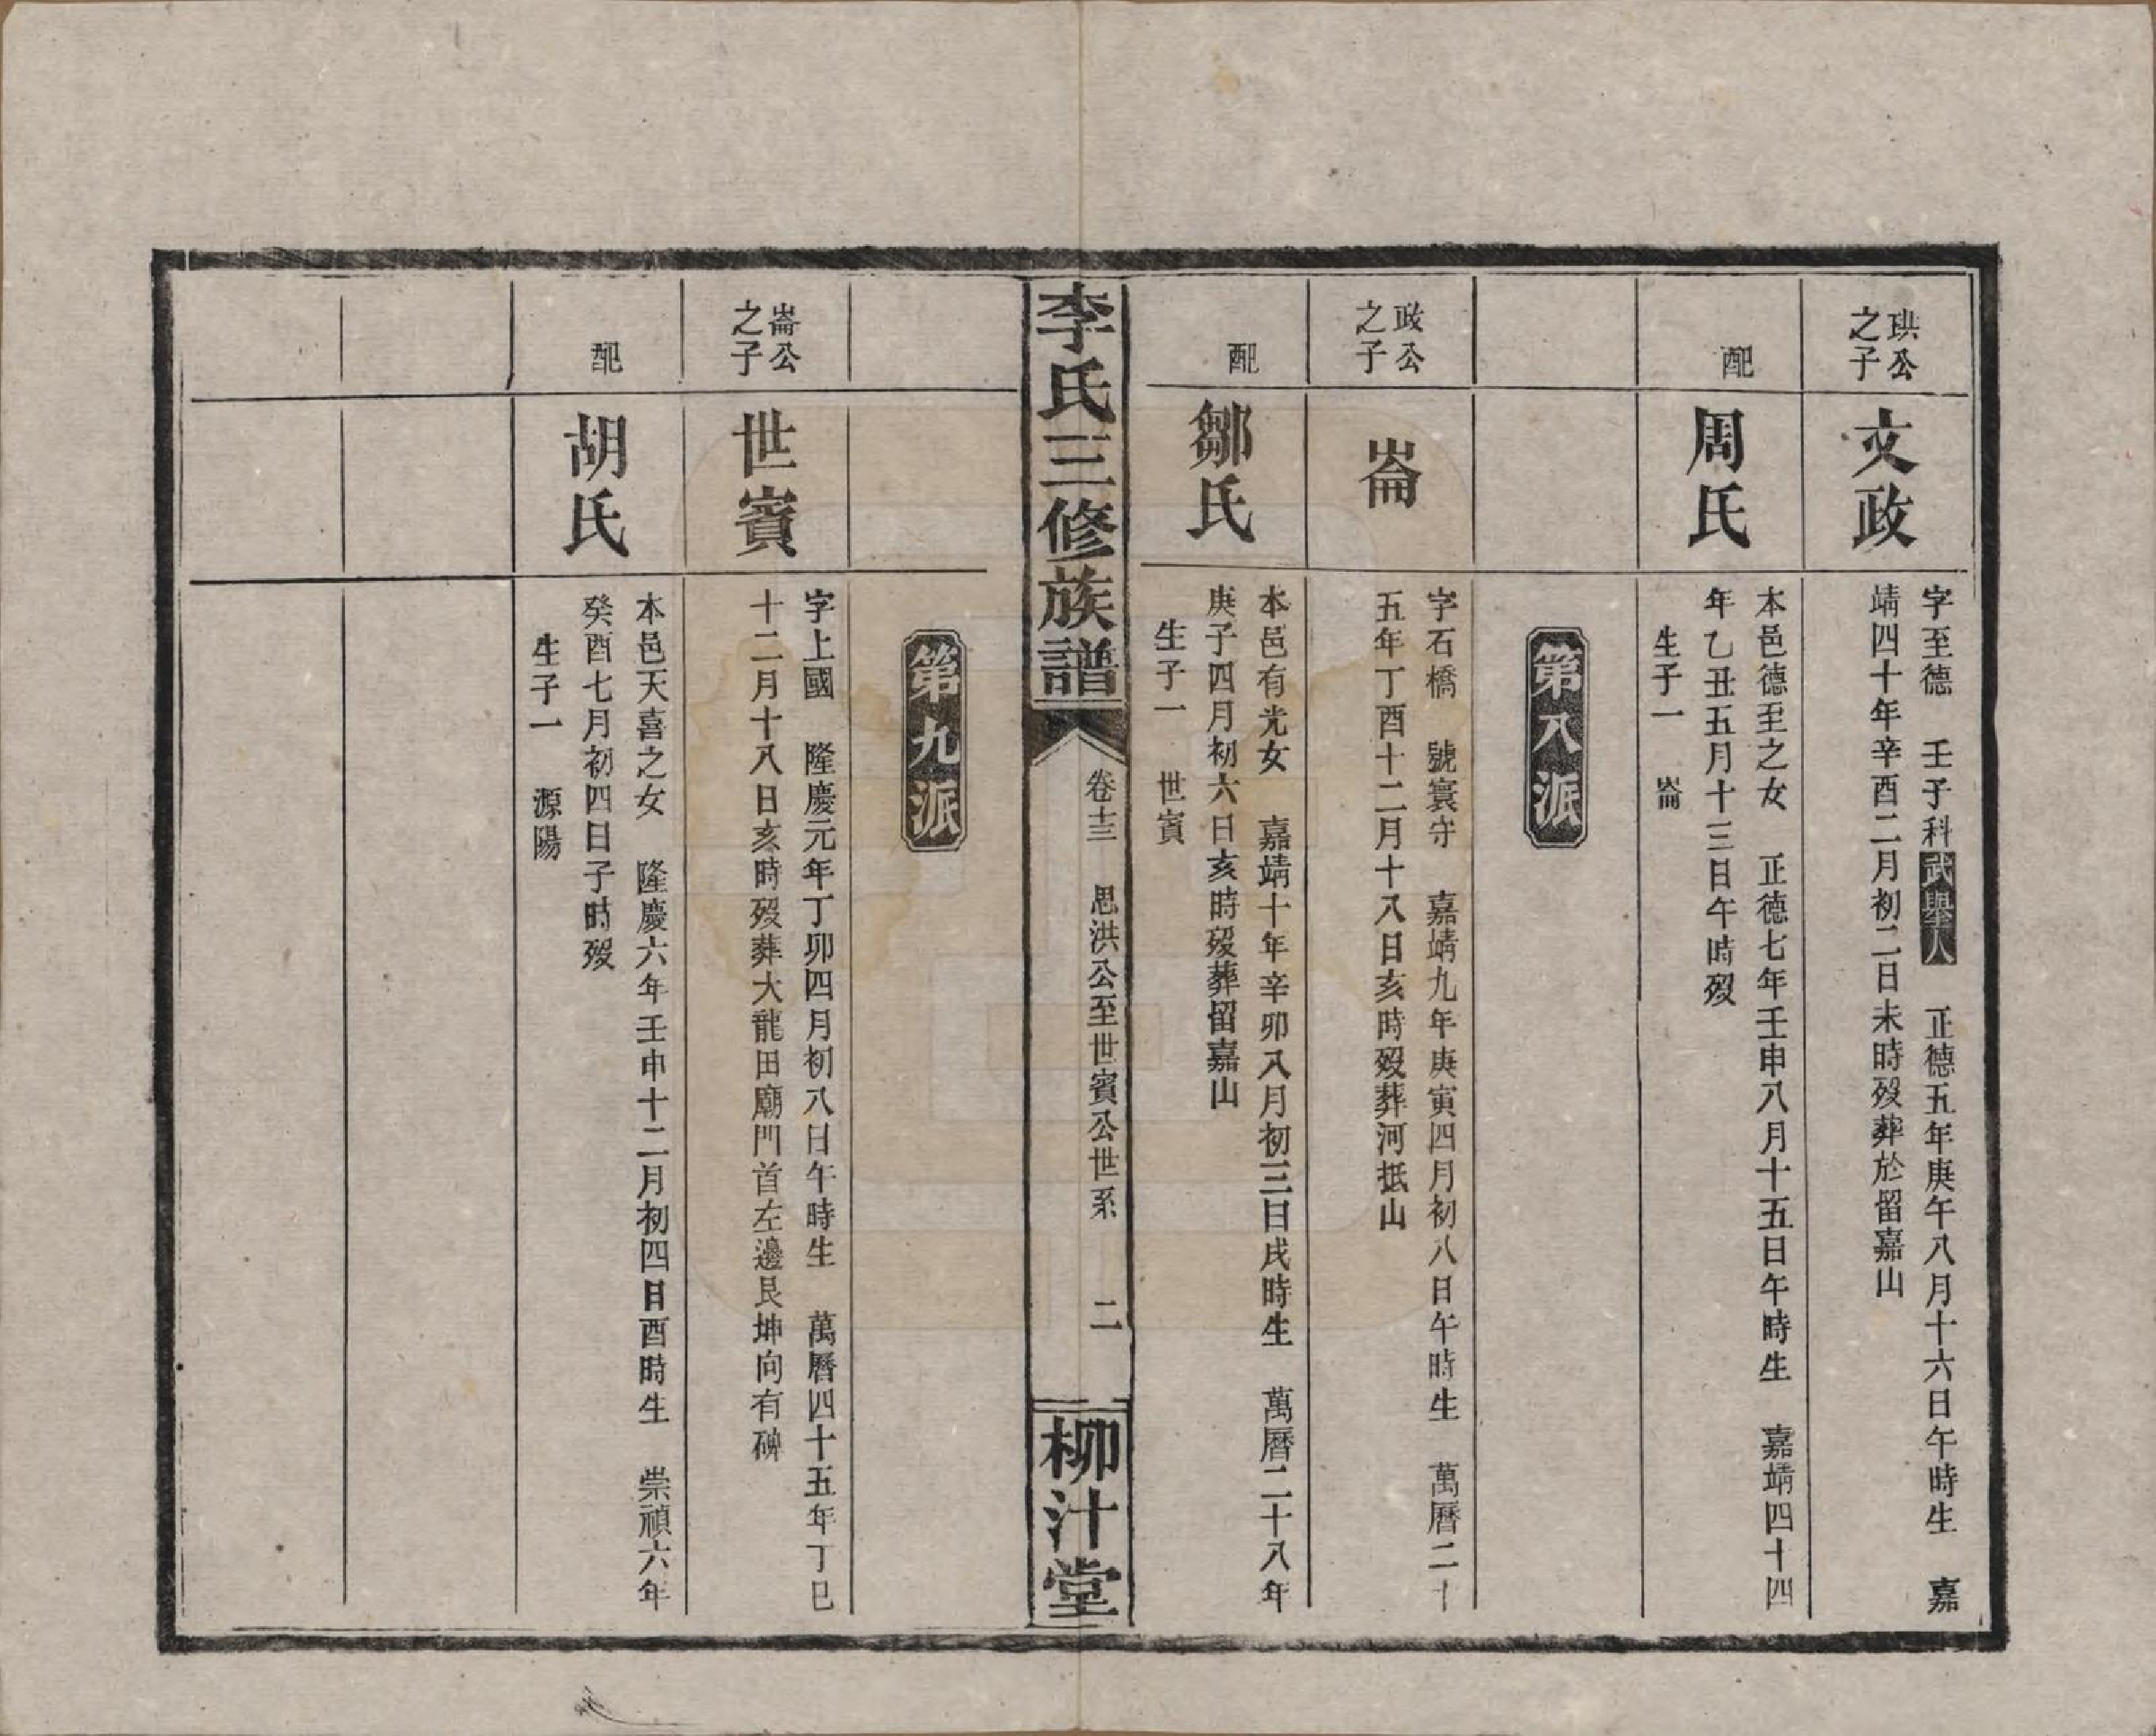 珙公
之子
文政
字至德　壬子科武舉人　正德五年庚午八月十六日午時生　嘉
靖四十年辛酉二月初二日未時歿葬於留嘉山
配
周氏
本邑德至之女　正德七年壬申八月十五日午時生　嘉靖四十四
年乙丑五月十三日午時歿
生子一　崙
第八派
政公
之子
崙
字石橋　號寰守　嘉靖九年庚寅四月初八日午時生　萬曆二十
五年丁酉十二月十八日亥時歿葬河抵山
配
鄒氏
本邑有光女　嘉靖十年辛卯八月初三日戌時生　萬曆二十八年
庚子四月初六日亥時歿葬留嘉山
生子一　世賓
李氏三修族譜
卷十三　思洪公至世賓公世系　二
柳汁堂
第九派
崙公
之子
世賓
字上國　隆慶元年丁卯四月初八日午時生　萬曆四十五年丁巳
十二月十八日亥時歿葬大龍田廟門首左邊艮坤向有碑
配
胡氏
本邑天喜之女　隆慶六年壬申十二月初四日酉時生　崇禎六年
癸酉七月初四日子時歿
生子一　源陽